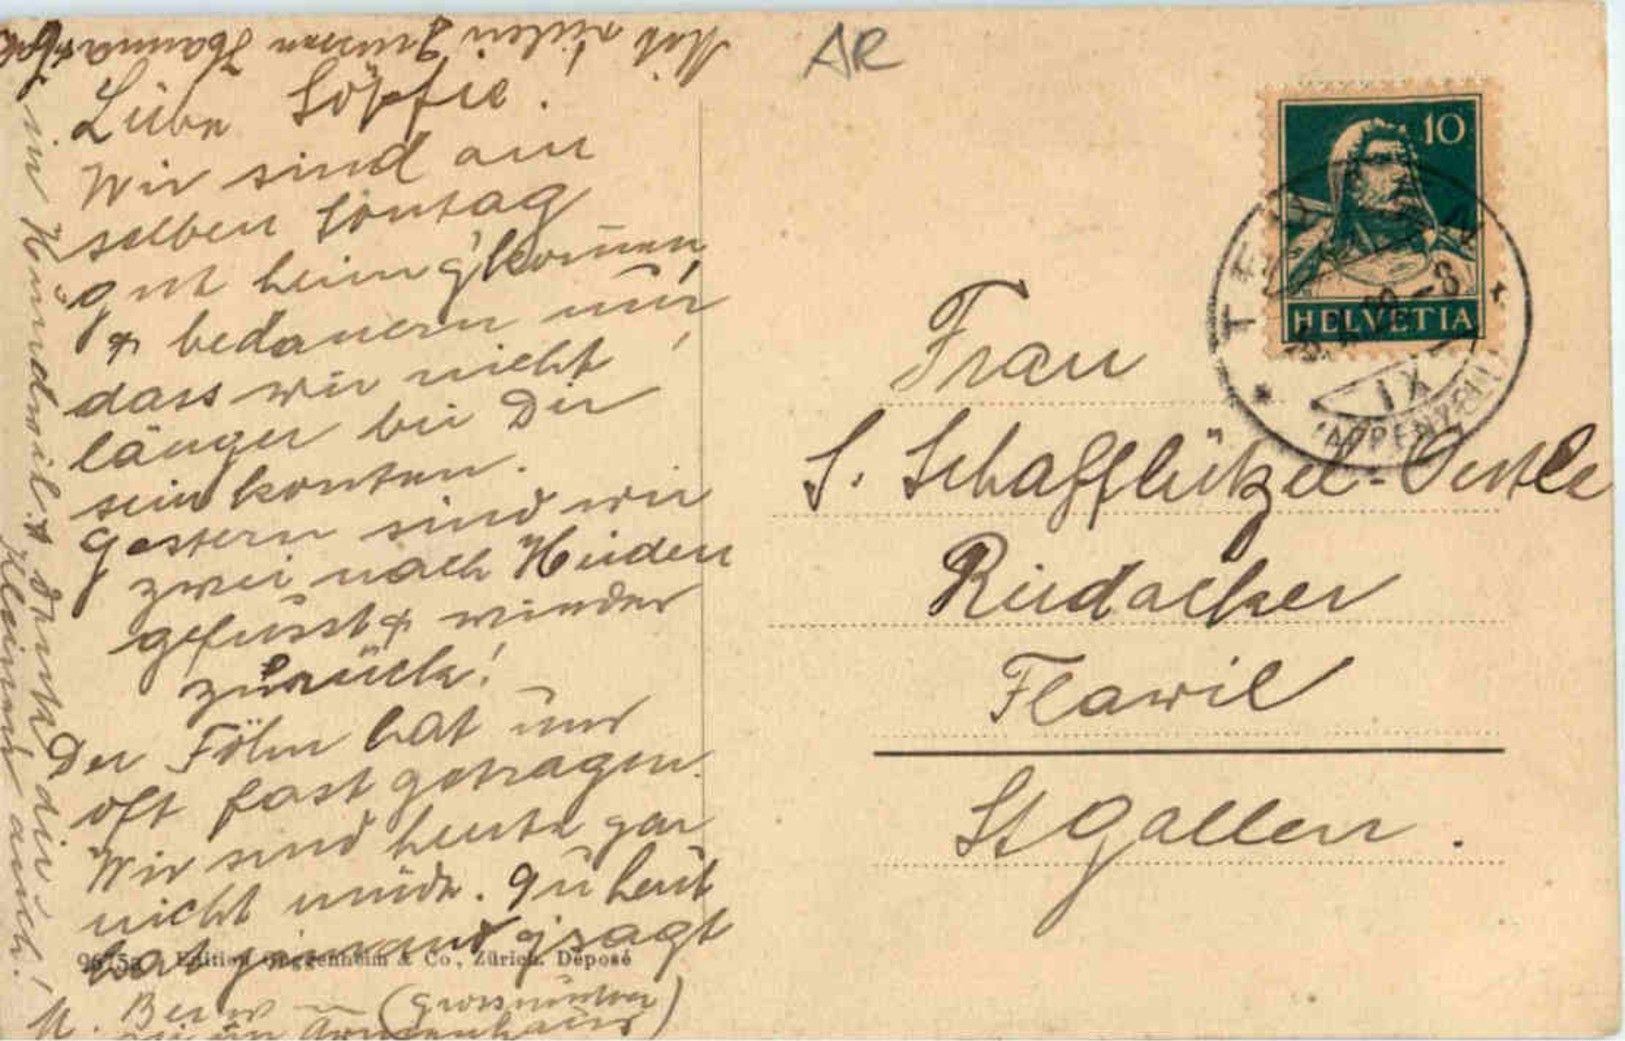 AR
Mit vielen Grüssen Hanna
Liebe Söpfie.
Wir sind am
selben Sontag
gut heim g'kommen
& bedauern nur
dass wir nicht
länger bei Dir
sein konten.
Gestern sind wir
zwei nach Heiden
gefusst & wieder
zurück!
Der Föhn hat uns
oft fast getragen.
Wir sind heute gar
nicht müde.
hat jsagt
(Grossmutter
in Hundwil & dir
Kleinen auch!
9675a Edition Guggenheim & Co., Zürich. Déposé
10
HELVETIA
IX
(APPENZELL)
Frau
S. Schafflützel-Oertle
Riedacker
Flawil
St Gallen.